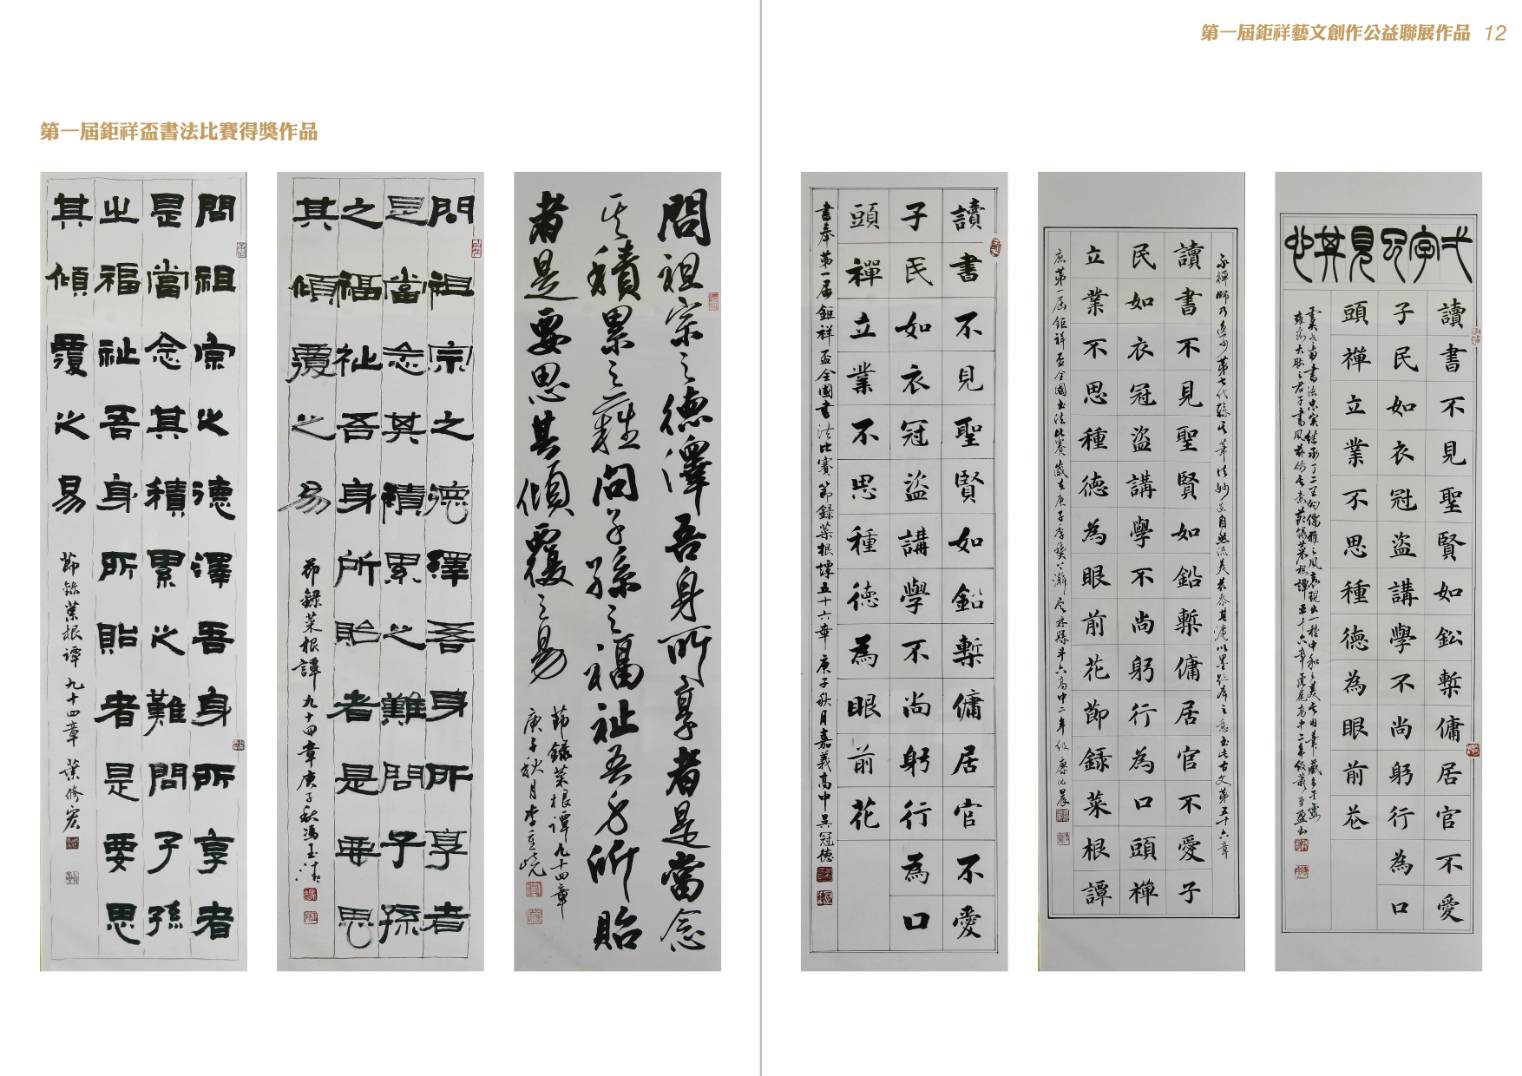 第一屆鉅祥藝文創作公益聯展作品 12
第一屆鉅祥盃書法比賽得獎作品
問祖宗之德澤吾身所享者
是當念其積累之難問子孫
之福祉吾身所貽者是要思
其傾覆之易
節錄菜根譚 九十四章 葉修宏
問祖宗之德澤吾身所享者
是當念其積累之難問子孫
之福祉吾身所貽者是要思
其傾覆之易
節錄菜根譚 九十四章庚子秋馮玉清
問祖宗之德澤吾身所享者是當念
其積累之難問子孫之福祉吾身所貽
者是要思其傾覆之易
節錄菜根譚九十四章
庚子秋月李
讀書不見聖賢如鉛槧傭居官不愛
子民如衣冠盜講學不尚躬行為口
頭禪立業不思種德為眼前花
書奉第一届鉅祥盃全國書法比賽節錄菜根譚五十六章庚子秋月嘉義高中吳冠德
讀書不見聖賢如鉛槧傭居官不愛子
民如衣冠盜講學不尚躬行為口頭禪
立業不思種德為眼前花節錄菜根譚
第五十六章
第一屆鉅祥盃全國書法比賽
弋字公見其心
讀書不見聖賢如鈆槧傭居官不愛
子民如衣冠盜講學不尚躬行為口
頭禪立業不思種德為眼前花
菜根譚五十六章